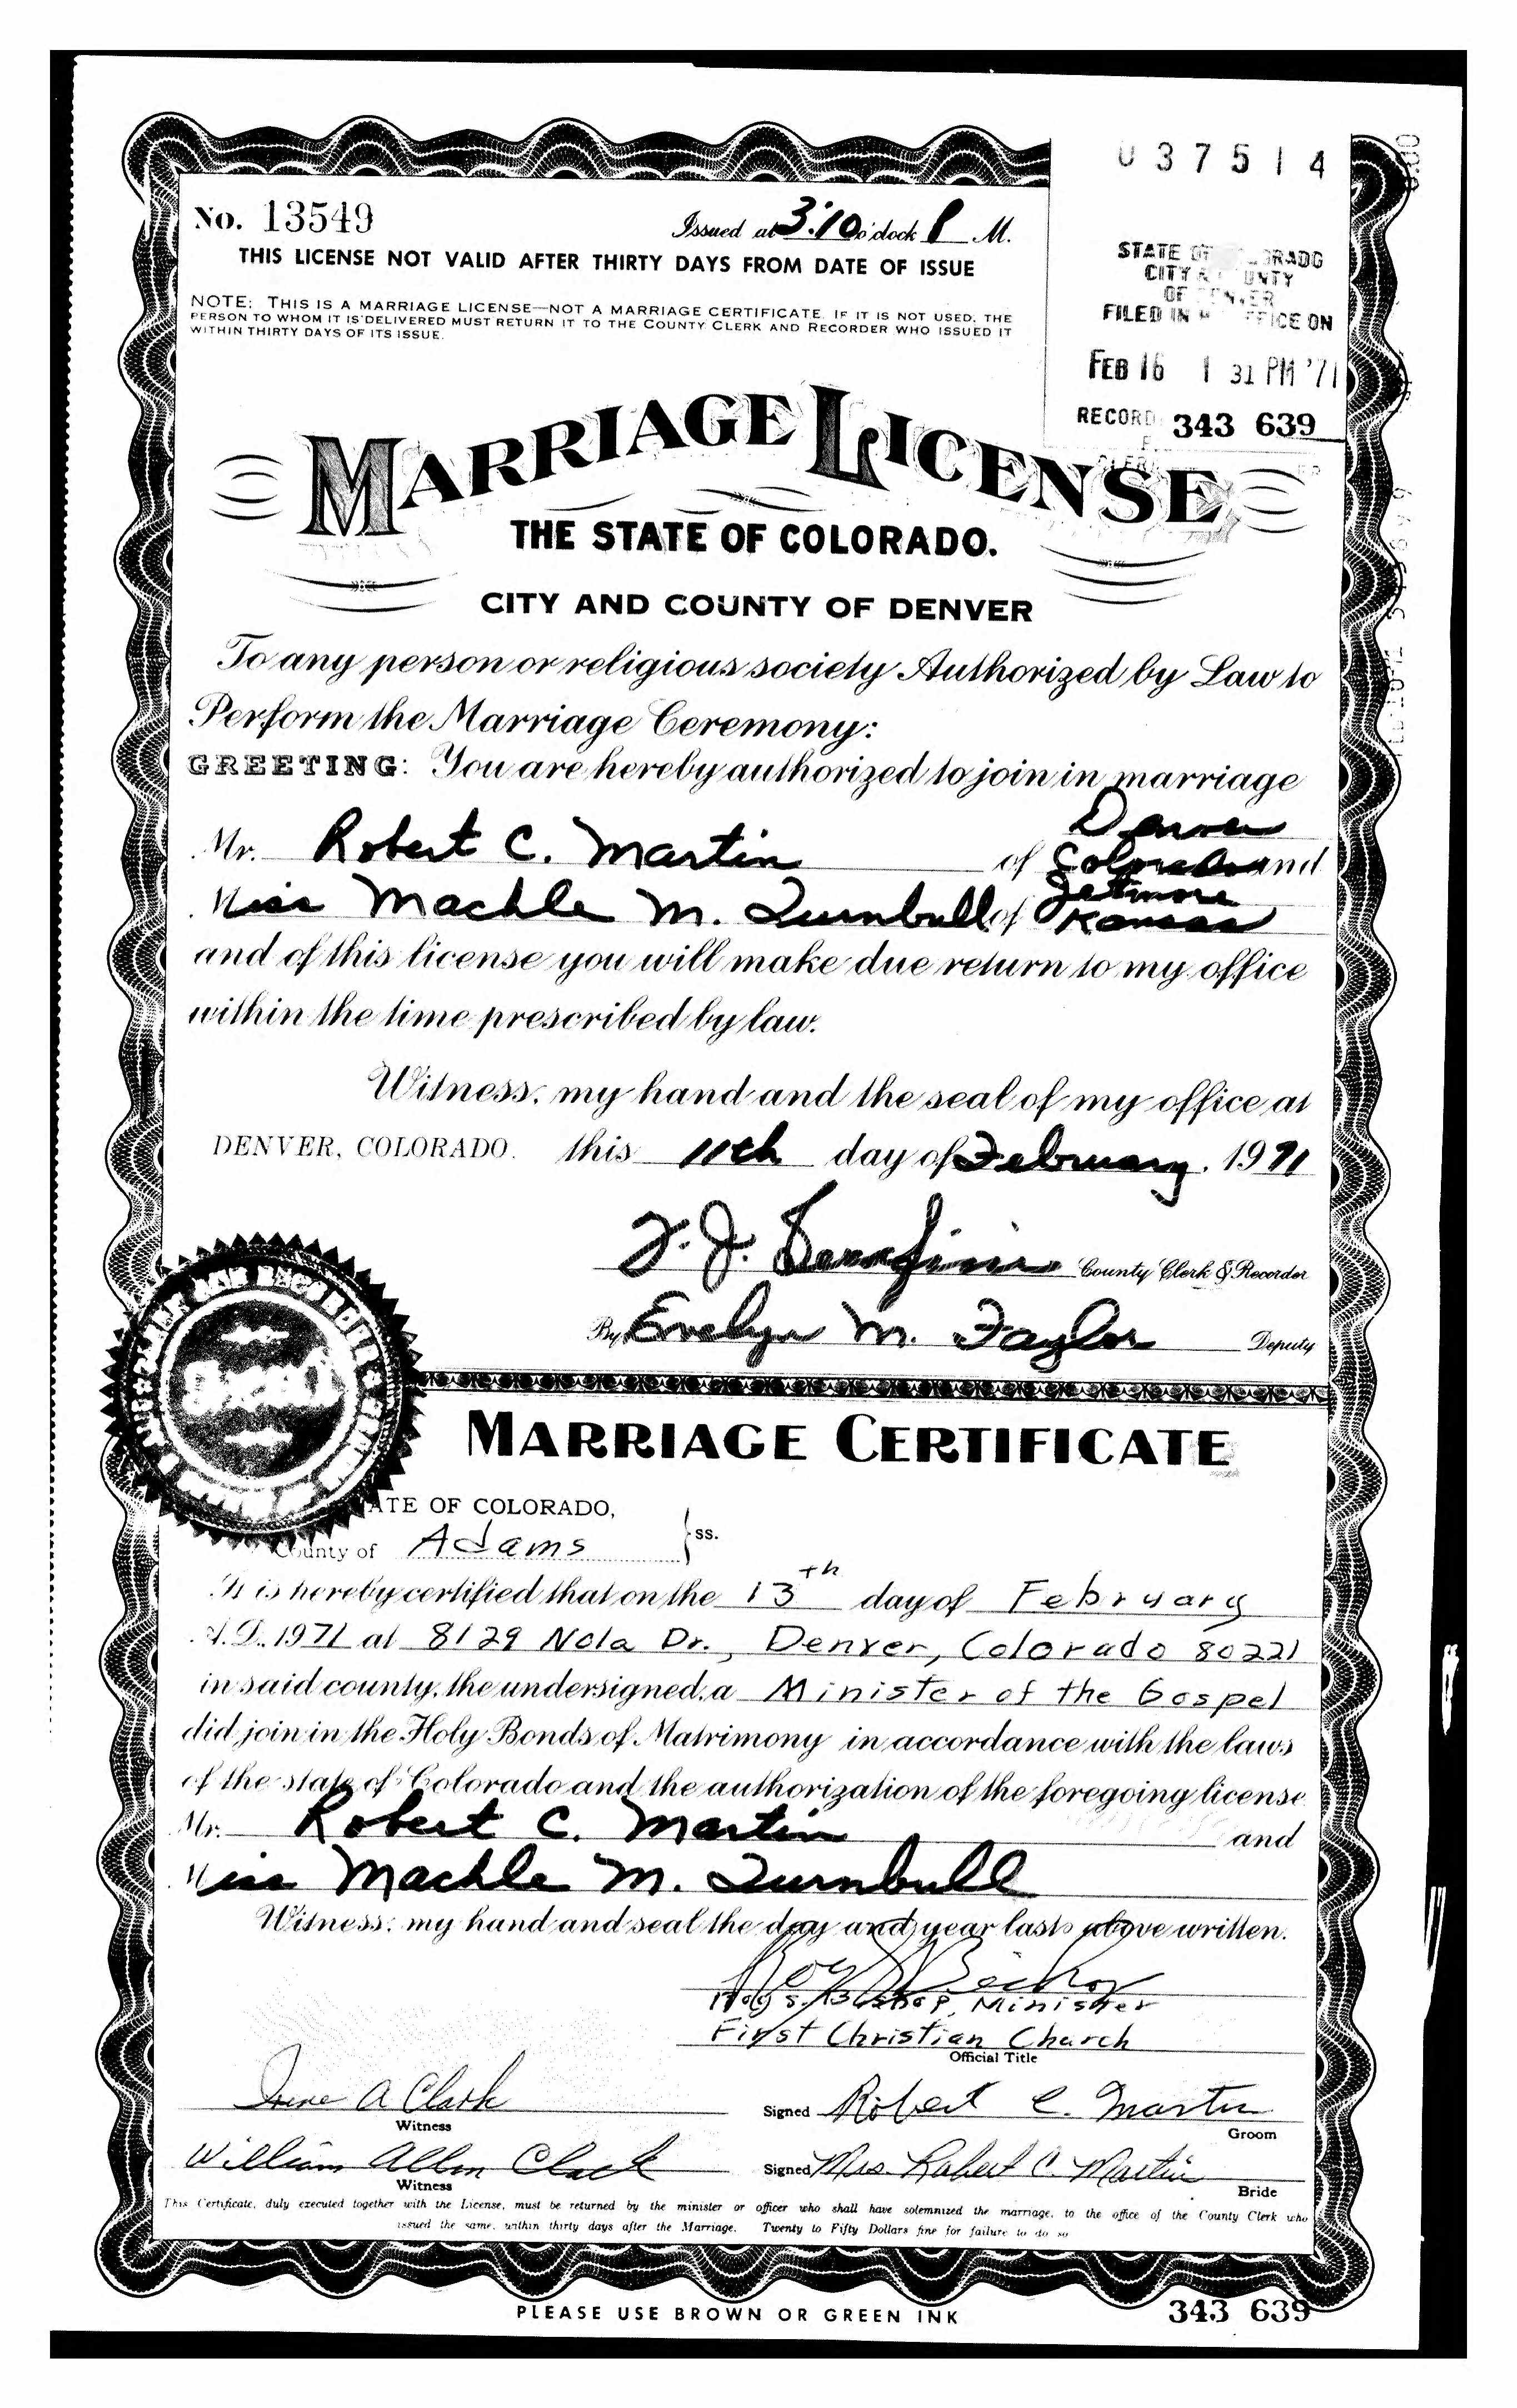 037514
No. 13549
Issued at 3:10 o'clock P M.
THIS LICENSE NOT VALID AFTER THIRTY DAYS FROM DATE OF ISSUE
NOTE: THIS IS A MARRIAGE LICENSE—NOT A MARRIAGE CERTIFICATE. IF IT IS NOT USED, THE
PERSON TO WHOM IT IS DELIVERED MUST RETURN IT TO THE COUNTY CLERK AND RECORDER WHO ISSUED IT
WITHIN THIRTY DAYS OF ITS ISSUE.
STATE OF
CITY
OF
FILED IN ON
FEB 16 1 31 PM '71
RECORD 343 639
MARRIAGE LICENSE
THE STATE OF COLORADO.
CITY AND COUNTY OF DENVER
To any person or religious society Authorized by Law to
Perform the Marriage Ceremony:
GREETING: You are hereby authorized to join in marriage
Mr. Robert C. Martin of Denver Colorado and
Miss Machle M. Turnbull of Jetmore Kansas
and of this license you will make due return to my office
within the time prescribed by law.
Witness, my hand and the seal of my office at
DENVER, COLORADO. this 11th day of February, 1971
F. J. Serafini County Clerk & Recorder
By Evelyn M. Taylor Deputy
MARRIAGE CERTIFICATE
ATE OF COLORADO,
County of Adams } ss.
It is hereby certified that on the 13th day of February
A.D. 1971 at 8129 Nola Dr., Denver, Colorado 80221
in said county, the undersigned, a Minister of the Gospel
did join in the Holy Bonds of Matrimony in accordance with the laws
of the state of Colorado and the authorization of the foregoing license
Mr. Robert C. Martin and
Miss Machle M. Turnbull
Witness: my hand and seal the day and year last above written.
Minister
First Christian Church
Official Title
Irene A Clark
Witness
Signed Robert C. Martin
Groom
William Allen Clark
Witness
Signed Mrs. Robert C. Martin
Bride
This Certificate, duly executed together with the License, must be returned by the minister or officer who shall have solemnized the marriage, to the office of the County Clerk who
issued the same, within thirty days after the Marriage. Twenty to Fifty Dollars fine for failure to do so
PLEASE USE BROWN OR GREEN INK
343 639